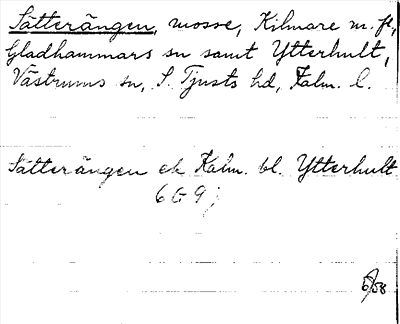 Sätterängen, mosse, Kilmare m. fl,
Gladhammars sn samt Ytterhult,
Västrums sn, S. Tjusts hd, Kalm. l.
Sätterängen ek Kalm. bl. Ytterhult
6 G 9;
5/58